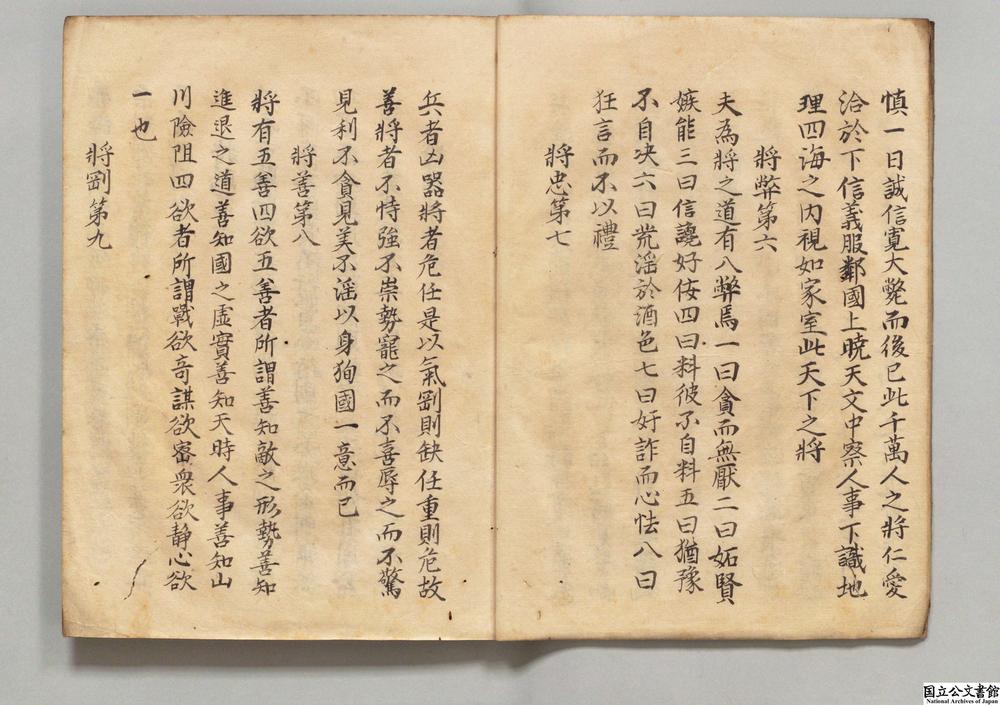 慎一日誠信寛大斃而後已此千萬人之將仁愛
洽於下信義服鄰國上曉天文中察人事下識地
理四海之内視如家室此天下之將
將弊第六
夫為將之道有八弊焉一曰貪而無厭二曰妬賢
嫉能三曰信讒好佞四曰料彼不自料五曰猶豫
不自决六曰荒滛於酒色七曰奸詐而心怯八曰
狂言而不以禮
將忠第七
兵者凶器將者危任是以氣剛則缺任重則危故
善將者不恃強不崇勢寵之而不喜辱之而不驚
見利不貪見美不滛以身狥國一意而已
將善第八
將有五善四欲五善者所謂善知敵之形勢善知
進退之道善知國之虛實善知天時人事善知山
川險阻四欲者所謂戰欲奇謀欲密衆欲静心欲
一也
將剛第九
国立公文書館
National Archives of Japan